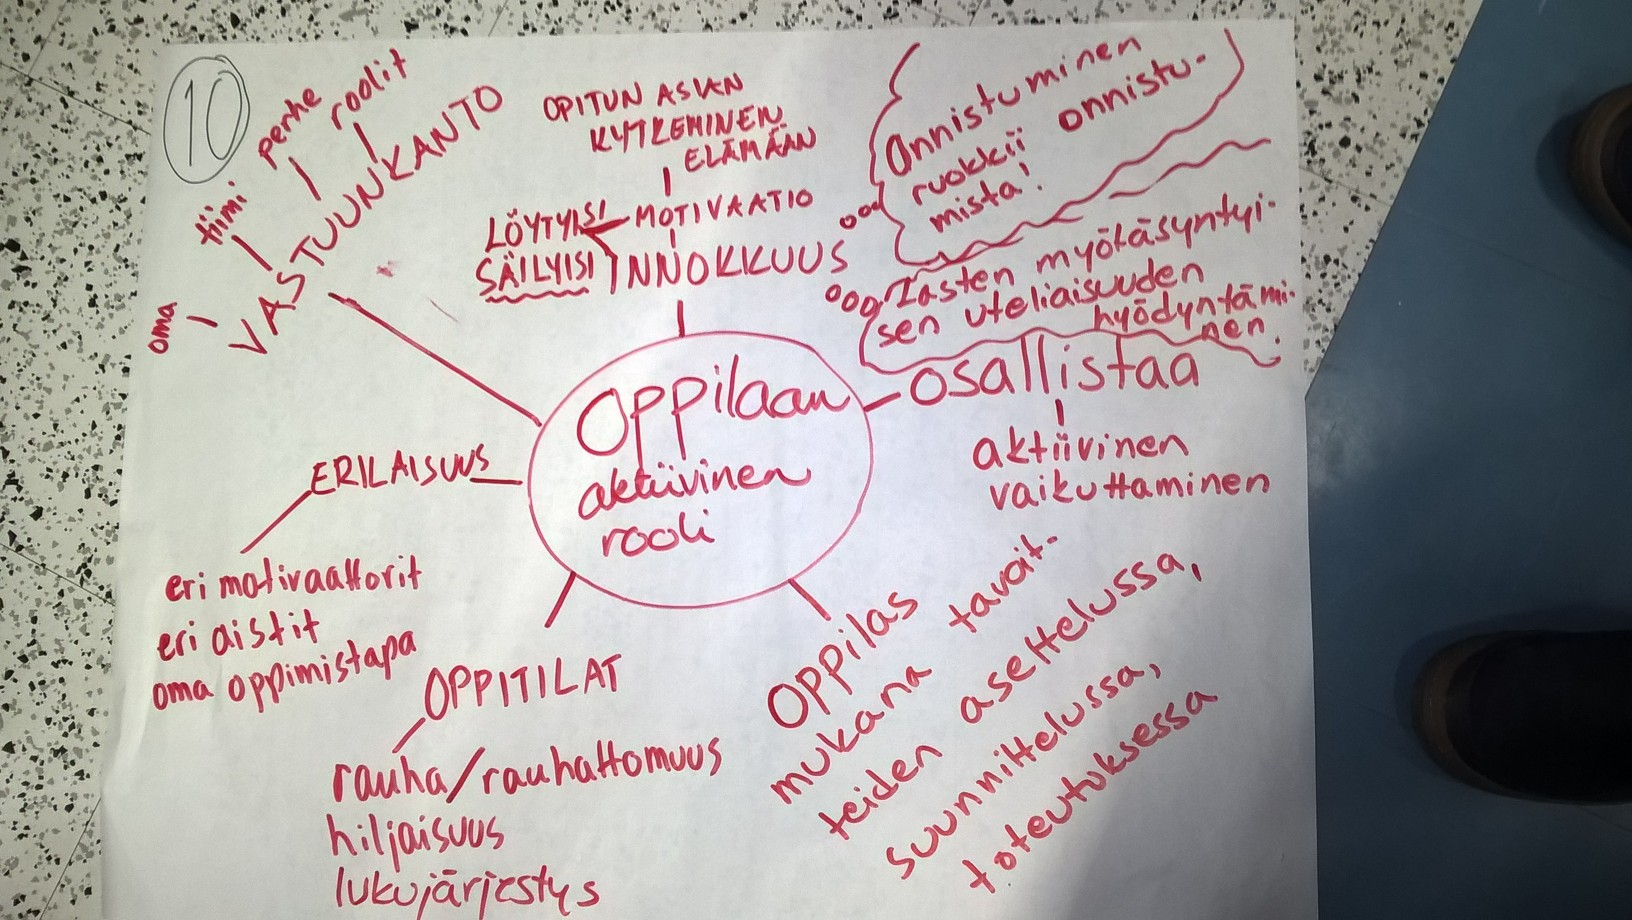 10
oma
tiimi
perhe
roolit
VASTUUNKANTO
OPITUN ASIAN
KYTKEMINEN
ELÄMÄÄN
MOTIVAATIO
LÖYTYISI
SÄILYISI
INNOKKUUS
Onnistuminen
ruokkii onnistu-
mista!
Lasten myötäsyntyi-
sen uteliaisuuden
hyödyntämi-
nen.
osallistaa
aktiivinen
vaikuttaminen
Oppilaan
aktiivinen
rooli
ERILAISUUS
eri motivaattorit
eri aistit
oma oppimistapa
OPPITILAT
rauha/rauhattomuus
hiljaisuus
lukujärjestys
Oppilas
mukana tavoit-
teiden asettelussa,
suunnittelussa,
toteutuksessa